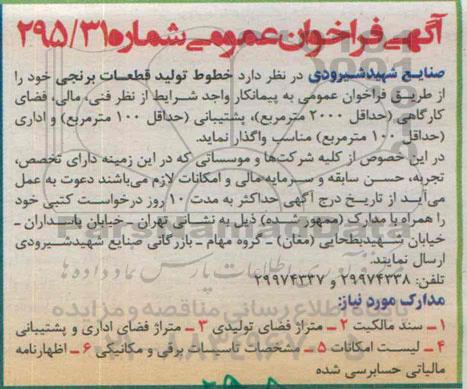 آگهی فراخوان عمومی شماره ۲۹۵/۳۱
صنایع شهیدشیرودی در نظر دارد خطوط تولید قطعات برنجی خود را
از طریق فراخوان عمومی به پیمانکار واجد شرایط از نظر فنی، مالی، فضای
کارگاهی (حداقل ۲۰۰۰ مترمربع)، پشتیبانی (حداقل ۱۰۰ مترمربع) و اداری
(حداقل ۱۰۰ مترمربع) مناسب واگذار نماید.
در این خصوص از کلیه شرکت‌ها و موسساتی که در این زمینه دارای تخصص،
تجربه، حسن سابقه و سرمایه مالی و امکانات لازم می‌باشند دعوت به عمل
می‌آید از تاریخ درج آگهی حداکثر به مدت ۱۰ روز درخواست کتبی خود
را همراه با مدارک (ممهور شده) ذیل به نشانی تهران ـ خیابان پاسداران ـ
خیابان شهیدبطحایی (مغان) ـ گروه مهام ـ بازرگانی صنایع شهیدشیرودی
ارسال نمایند.
تلفن: ۲۹۹۷۴۳۳۸ و ۲۹۹۷۴۳۳۷
مدارک مورد نیاز:
۱ـ سند مالکیت ۲ـ متراژ فضای تولیدی ۳ـ متراژ فضای اداری و پشتیبانی
۴ـ لیست امکانات ۵ـ مشخصات تاسیسات برقی و مکانیکی ۶ـ اظهارنامه
مالیاتی حسابرسی شده